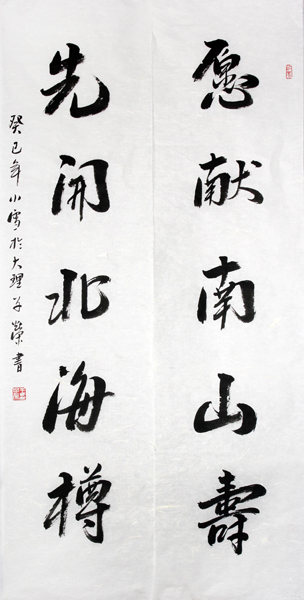 愿献南山寿
先开北海樽
癸巳年小雪於大理
荣書